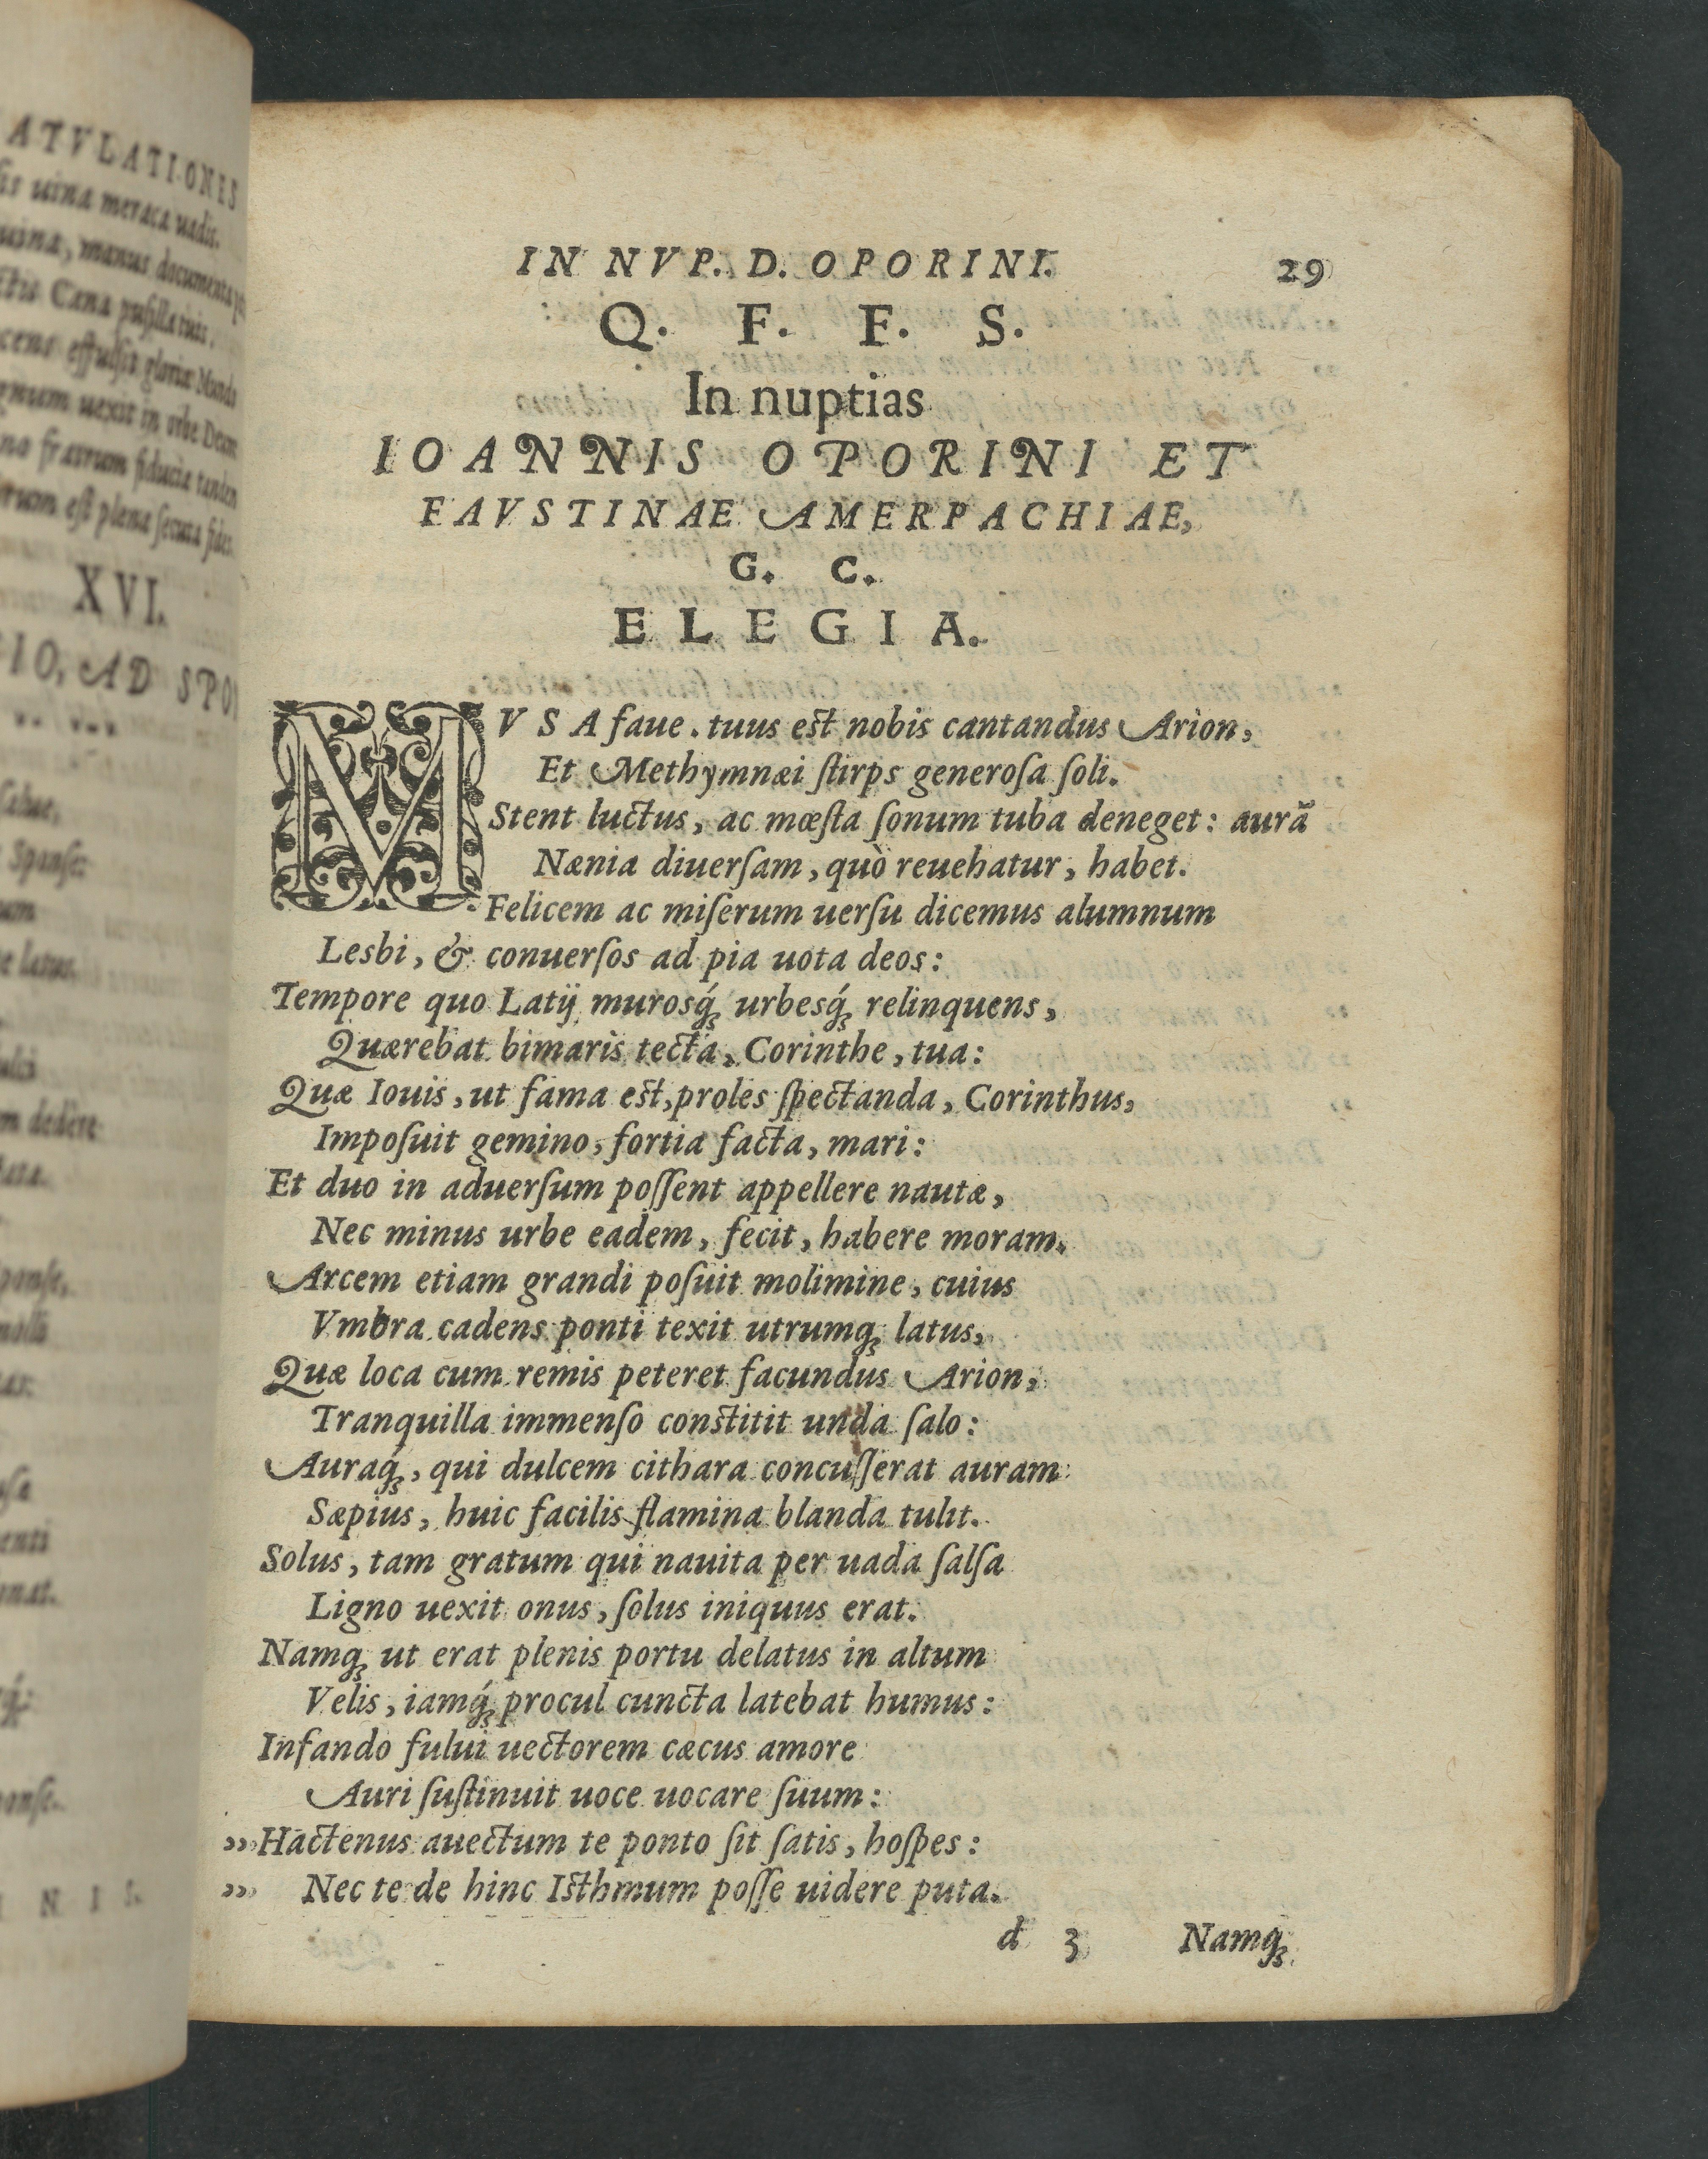 ATVLATIONES
uina meraca uadis.
uina, manus documenta
Cana pusilla tuis.
effulsit gloria Mundo
uexit in orbe Deum
fratrum fiducia
est plena secuta fides.
XVI.
GIO, AD SPO
Sponse:
latus.
dedere
IN NVP. D. OPORINI. 29
Q. F. F. S.
In nuptias
IOANNIS OPORINI ET
FAVSTINAE AMERPACHIAE,
G. C.
ELEGIA.
MVSA faue. tuus est nobis cantandus Arion,
Et Methymnæi ſtirps generoſa ſoli.
Stent luctus, ac mœſta ſonum tuba deneget: aurã
Nænia diuerſam, quò reuehatur, habet.
Felicem ac miſerum uerſu dicemus alumnum
Lesbi, & conuerſos ad pia uota deos:
Tempore quo Latij murosq́ꝫ urbesq́ꝫ relinquens,
Quærebat bimaris tecta, Corinthe, tua:
Quæ Iouis, ut fama est, proles ſpectanda, Corinthus,
Impoſuit gemino, fortia facta, mari:
Et duo in aduerſum poſſent appellere nautæ,
Nec minus urbe eadem, fecit, habere moram.
Arcem etiam grandi poſuit molimine, cuius
Vmbra cadens ponti texit utrumqꝫ latus,
Quæ loca cum remis peteret facundus Arion,
Tranquilla immenſo constitit unda ſalo:
Auraq́ꝫ, qui dulcem cithara concuſſerat auram
Sæpius, huic facilis flamina blanda tulit.
Solus, tam gratum qui nauita per uada ſalſa
Ligno uexit onus, ſolus iniquus erat.
Namqꝫ ut erat plenis portu delatus in altum
Velis, iamq́ꝫ procul cuncta latebat humus:
Infando fului uectorem cæcus amore
Auri ſuſtinuit uoce uocare ſuum:
„ Hactenus auectum te ponto ſit ſatis, hoſpes:
„ Nec te de hinc Isthmum poſſe uidere puta.
d 3 Namqꝫ